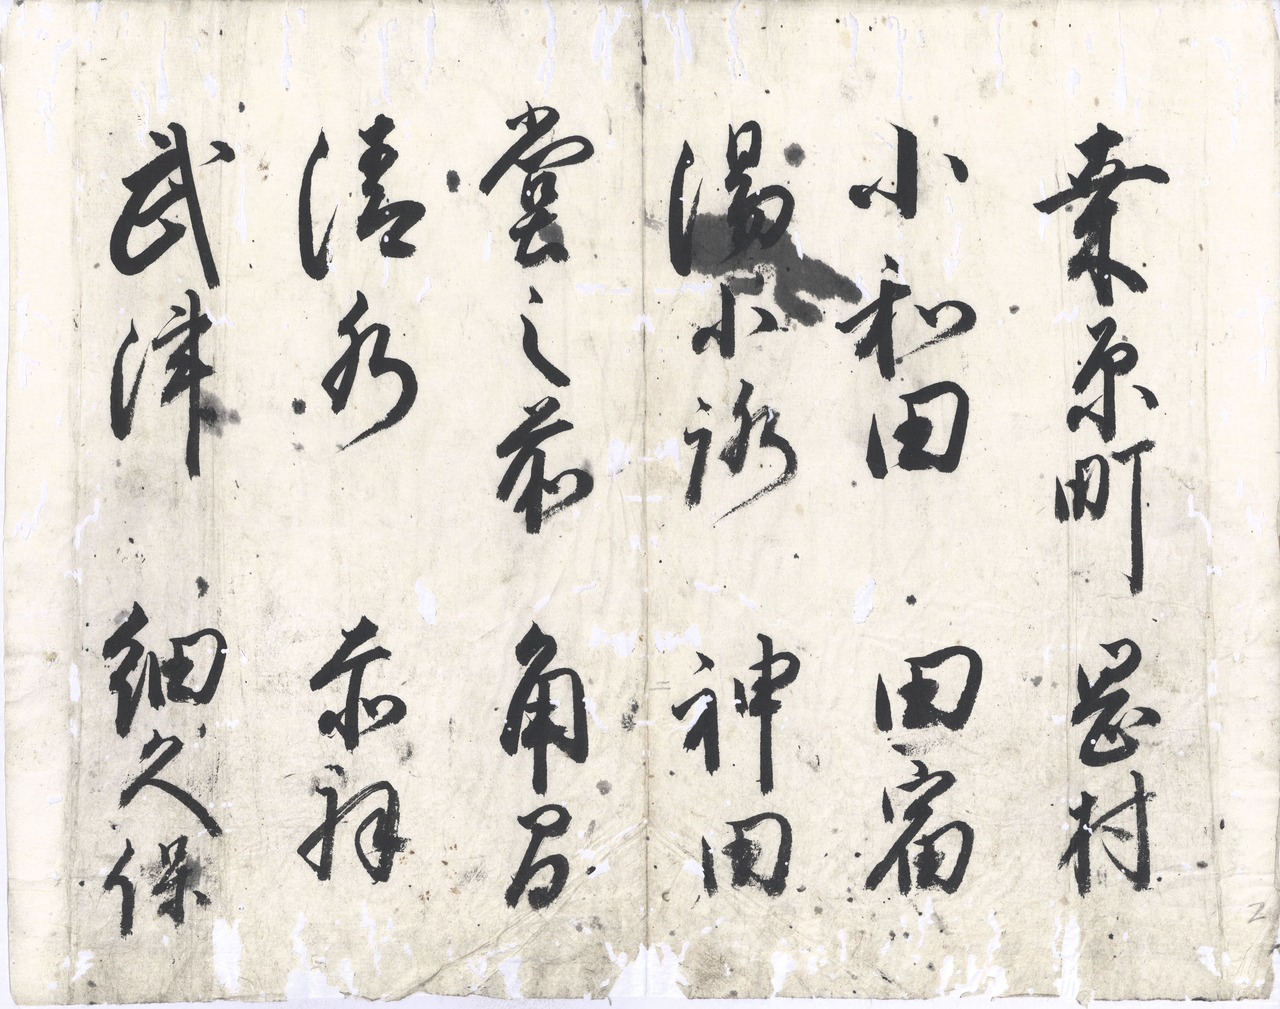 桒原町 岡村
小和田 田宿
湯小路 神田
堂之前 角間
清水 赤羽
武津 細久保
2